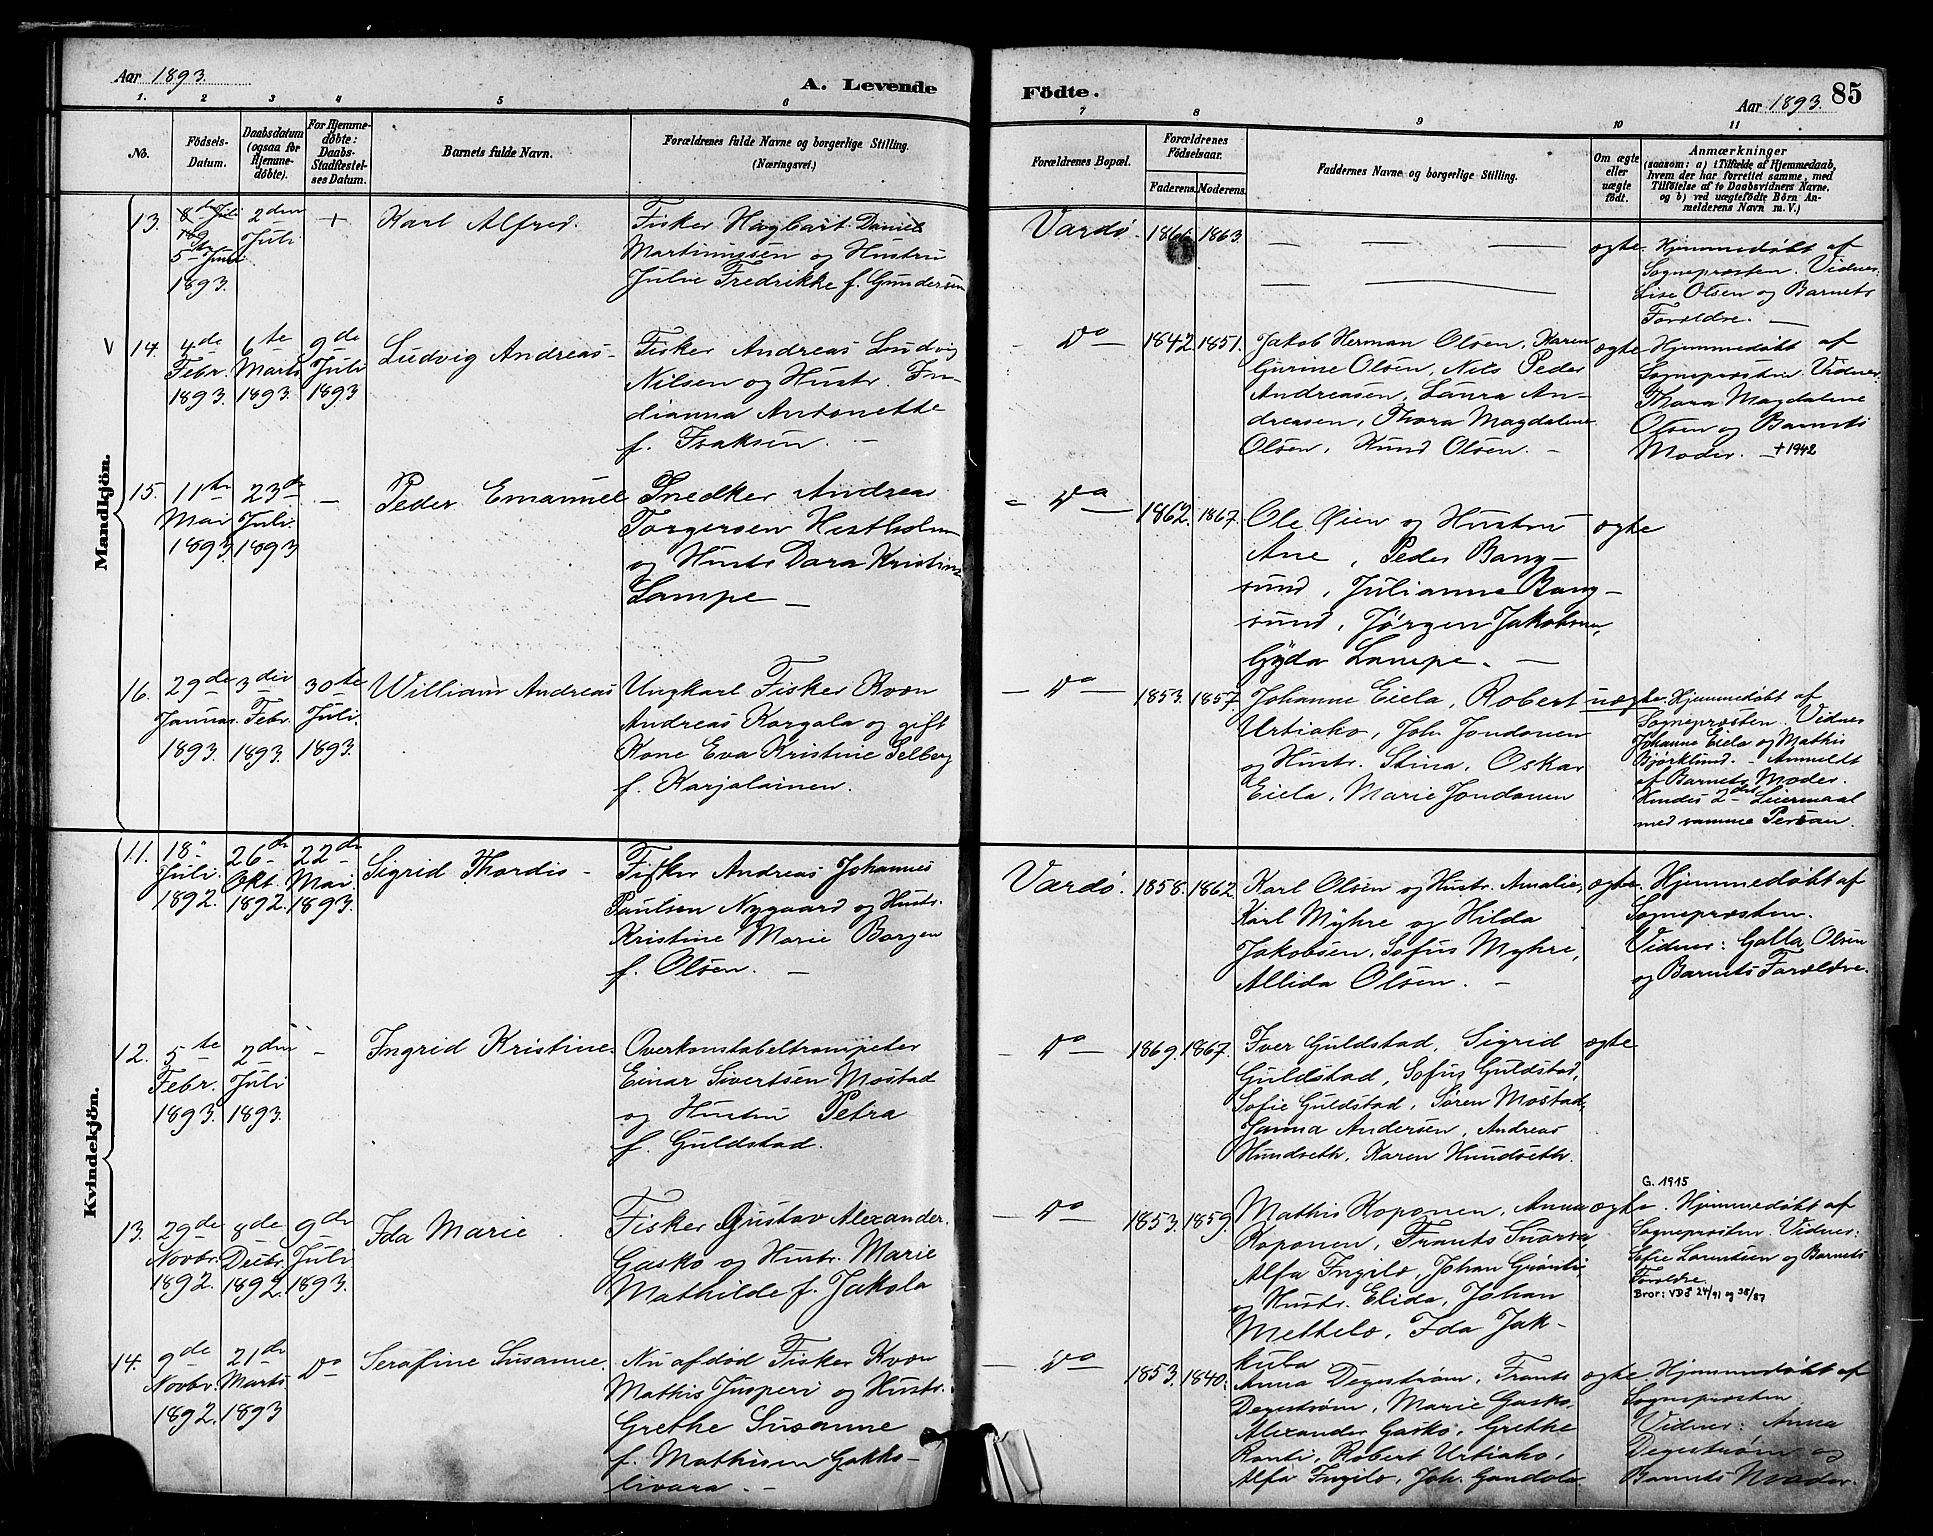 Aar 1893.
A. Levende
1. 2 3 4 5 6
No.
Födsels-Datum.
Daabsdatum (ogsaa for Hjemme-døbte).
For Hjemme-døbte: Daabs-Stadfæstel-ses Datum.
Barnets fulde Navn.
Forældrenes fulde Navne og borgerlige Stilling.
(Næringsvei.)
Mandkjön.
13.
5te Juni
1893.
2den
Juli
+
Karl Alfred.
Fisker Hagbart Daniel
Martinussen og Hustru
Julie Fredrikke f. Gundersen
V 14.
4de
Febr.
1893.
6te
Marts
1893.
9de
Juli
1893
Ludvig Andreas-
Fisker Andreas Ludvig
Nilsen og Hustr. In-
dianna Antonette
f. Isaksen. -
15.
11te
Mai
1893.
23de
Juli.
1893
-
Peder Emanuel
Snedker Andreas
Torgersen Hestholm
og Hustr Dora Kristine
Lampe -
16.
29de
Januar.
1893.
3die
Febr.
1893.
30te
Juli.
1893.
William Andreas
Ungkarl Fisker Kvæn
Andreas Korgala og gift
Kone Eva Kristine Selberg
f. Karjalainen.
Kvindekjön.
11.
18
Juli
1892.
26de
Okt.
1892.
22de
Mai.
1893.
Sigrid Thordis -
Fisker Andreas Johannes
Paulsen Nygaard og Hustr.
Kristine Marie Borgen
f. Olsen. -
12.
5te
Febr.
1893.
2den
Juli
1893.
-
Ingrid Kristine
Overkonstabeltrompeter
Einar Sivertsen Mostad
og Hustru Petra
f. Guldstad.
13.
29de
Novbr.
1892.
8de
Decbr.
1892.
9de
Juli
1893.
Ida Marie
Fisker Gustav Alexander
Gasko og Hustr. Marie
Mathilde f. Jakola
14.
9de
Novbr.
1892.
21de
Marts
1893
Do
Serafine Susanne
Nu afdød Fisker Kvæn
Mathis Jusperi og Hustr.
Grethe Susanne
f. Mathisen Gakko-
livara. -
Födte.
Aar 1893. 85
7 8 9 10 11
Forældrenes Bopæl.
Forældrenes Födselsaar.
Faderens. Moderens.
Faddernes Navne og borgerlige Stilling.
Om ægte eller uægte födt.
Anmærkninger
(saasom: a) i Tilfælde af Hjemmedaab,
hvem der har forrettet samme, med
Tilföielse af to Daabsvidners Navne.
og b) ved uægtefödte Börn An-
melderens Navn m. V.)
Vardø. 1866 1863. — — —
— —
ægte.
Hjemmedøbt af
Sogneprøsten. Vidner.
Lise Olsen og Barnets
Forældre. -
- Do - 1842. 1851.
Jakob Herman Olsen, Karen
Gurine Olsen, Nils Peder
Andreasen, Laura An-
dreasen, Thora Magdalene
Olsen, Knud Olsen. -
ægte
Hjemmedøbt af
Sogneprøsten. Vidner:
Thora Magdalene
Olsen og Barnets
Moder. - +1942
- Do - 1862. 1867.
Ole Øien og Hustru
Ane, Peder Bang-
sund, Julianne Bang-
sund, Jørgen Jakobsen,
Gyda Lampe. -
ægte
- Do - 1853. 1857
Johanne Eiela, Robert
Urtiako, Joh. Jondonen
og Hustr. Stina, Oskar
Eiela, Marie Jondonen
uægte.
Hjemmedøbt af
Sogneprøsten. Vidner
Johanne Eiela og Mathis
Bjørklund. - Anmeldt
af Barnets Moder.
Hendes 2det Leiermaal
med samme Person.
Vardø. 1858. 1862.
Karl Olsen og Hustr. Amalie,
Karl Myhre og Hilda
Jakobsen, Sofus Myhre,
Allida Olsen. -
ægte.
Hjemmedøbt af
Sogneprøsten.
Vidner: Galla Olsen
og Barnets Forældre.
- Do - 1869. 1867.
Iver Guldstad, Sigrid
Guldstad, Sofus Guldstad,
Sofie Guldstad, Søren Mostad,
Janna Andersen, Andreas
Hundseth, Karen Hundseth.
ægte
- Do - 1853. 1859.
Mathis Koponen, Anna
Koponen, Frants Snorsa,
Alfa Ingilo, Johan
og Hustr. Elida, Johan
Mettelo, Ida Jak-
kuba
ægte.
G. 1915
Hjemmedøbt af
Sogneprøsten. Vidner:
Sofie Lorentsen og Barnets
Forældre.
Bror: VD 24/91 og 38/87
- Do - 1853. 1840.
Anna Degestrøm, Frants
Degestrøm, Marie Gasko,
Alexander Gasko, Grethe
Ranti, Robert Urtiako,
Alfa Ingilo, Joh. Gondola.
ægte.
Hjemmedøbt af
Sogneprøsten
Vidner: Anna
Degestrøm og
Barnets Moder.